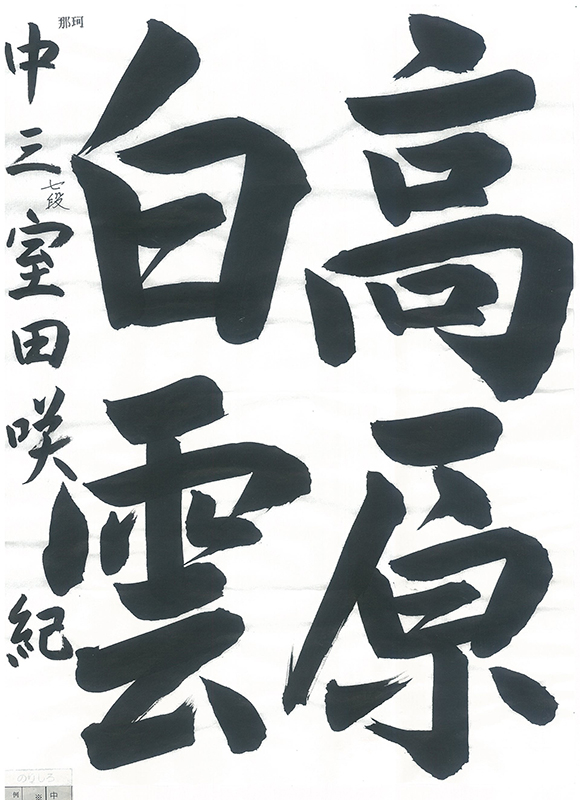 高原
白雲
那珂
中三 七段 室田咲紀
のりしろ
例 ※ 中